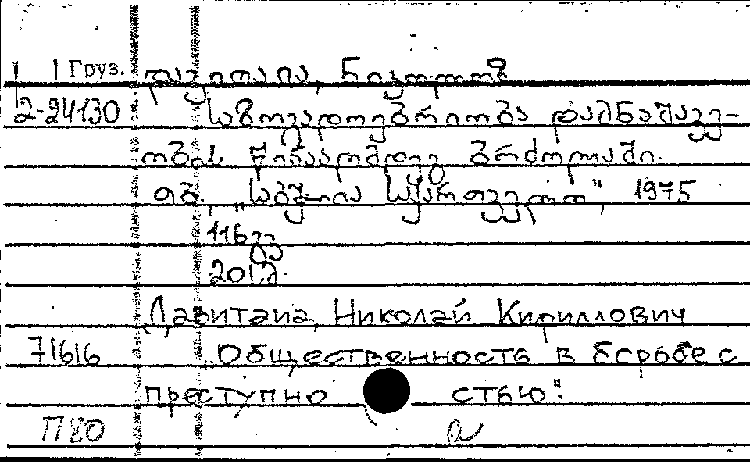 1 Груз. დავითაია, ნიკოლოზ
2-24130 საზოგადოებრიობა დამნაშავე-
ობის წინააღმდეგ ბრძოლაში.
თბ., „საბჭოთა საქართველო", 1975
116გვ
20სმ.
Давитаиа, Николай Кириллович
71616 Общественность в борьбе с
преступно стью.
П80